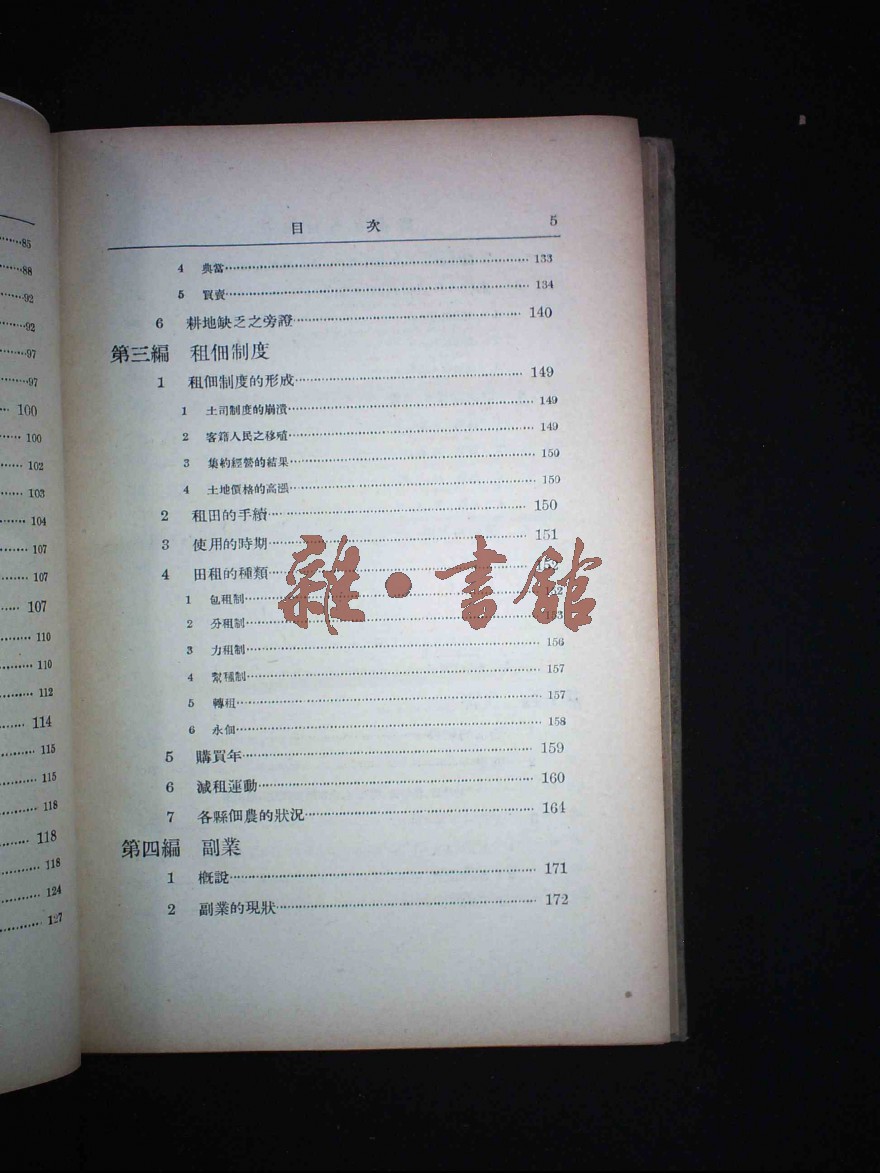 85
88
92
92
97
97
100
100
102
103
104
107
107
107
110
110
112
114
115
115
118
118
118
124
127
目 次 5
4 典當 133
5 買賣 134
6 耕地缺乏之旁證 140
第三編 租佃制度
1 租佃制度的形成 149
1 土司制度的崩潰 149
2 客籍人民之移殖 149
3 集約經營的結果 150
4 土地價格的高漲 150
2 租田的手續 150
3 使用的時期 151
4 田租的種類
1 包租制
2 分租制 153
3 力租制 156
4 幫種制 157
5 轉租 157
6 永佃 158
5 購買年 159
6 減租運動 160
7 各縣佃農的狀況 164
第四編 副業
1 概說 171
2 副業的現狀 172
雜·書館